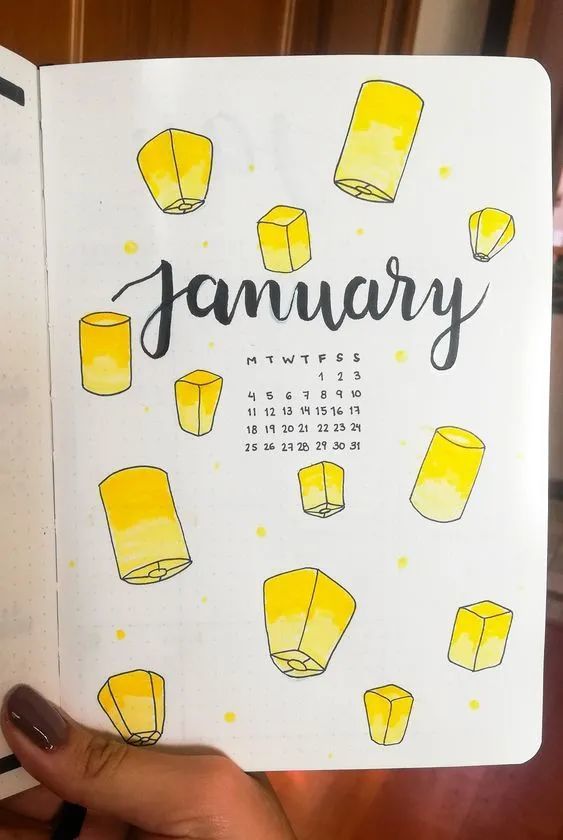 January
M T W T F S S
1 2 3
4 5 6 7 8 9 10
11 12 13 14 15 16 17
18 19 20 21 22 23 24
25 26 27 28 29 30 31